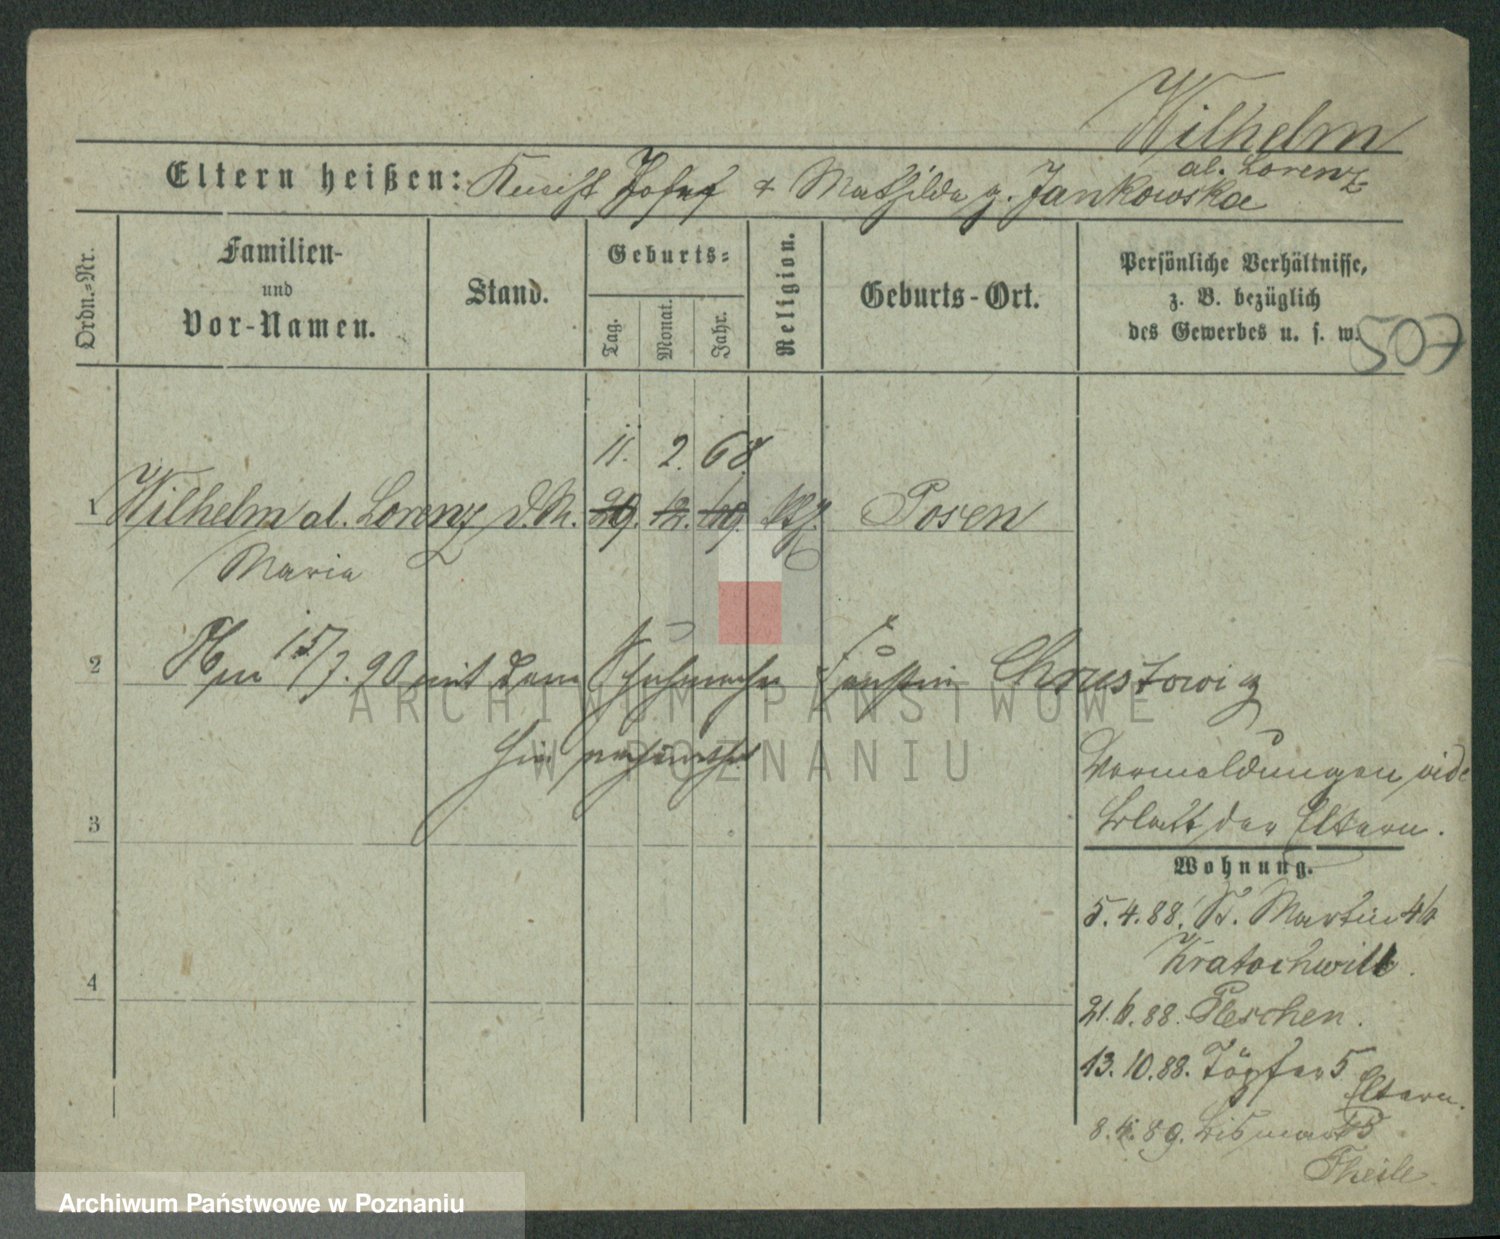 Wilhelm
al. Lorenz
Eltern heißen: Knecht Josef & Mathilde g. Jankowska
Ordn.-Nr.
Familien-
und
Vor-Namen.
Stand.
Geburts-
Tag.
Monat.
Jahr.
Religion.
Geburts-Ort.
Persönliche Verhältnisse,
z. B. bezüglich
des Gewerbes u. s. w.
507
11. 2. 68.
1 Wilhelm al. Lorenz d. M. 29. 12. 69. kth. Posen
Maria
2 15/7. 90 mit dem Schuhmacher Faustin Chrustowicz
hier verheirathet
3
4
Vermeldungen vide
Blatt der Eltern.
Wohnung.
5. 4. 88. St. Martin
Kratochwill.
21. 6. 88. Pleschen.
13. 10. 88. Töpfer 5
Eltern.
8. 4. 89. Bismark
Theile
ARCHIWUM PAŃSTWOWE
W POZNANIU
Archiwum Państwowe w Poznaniu